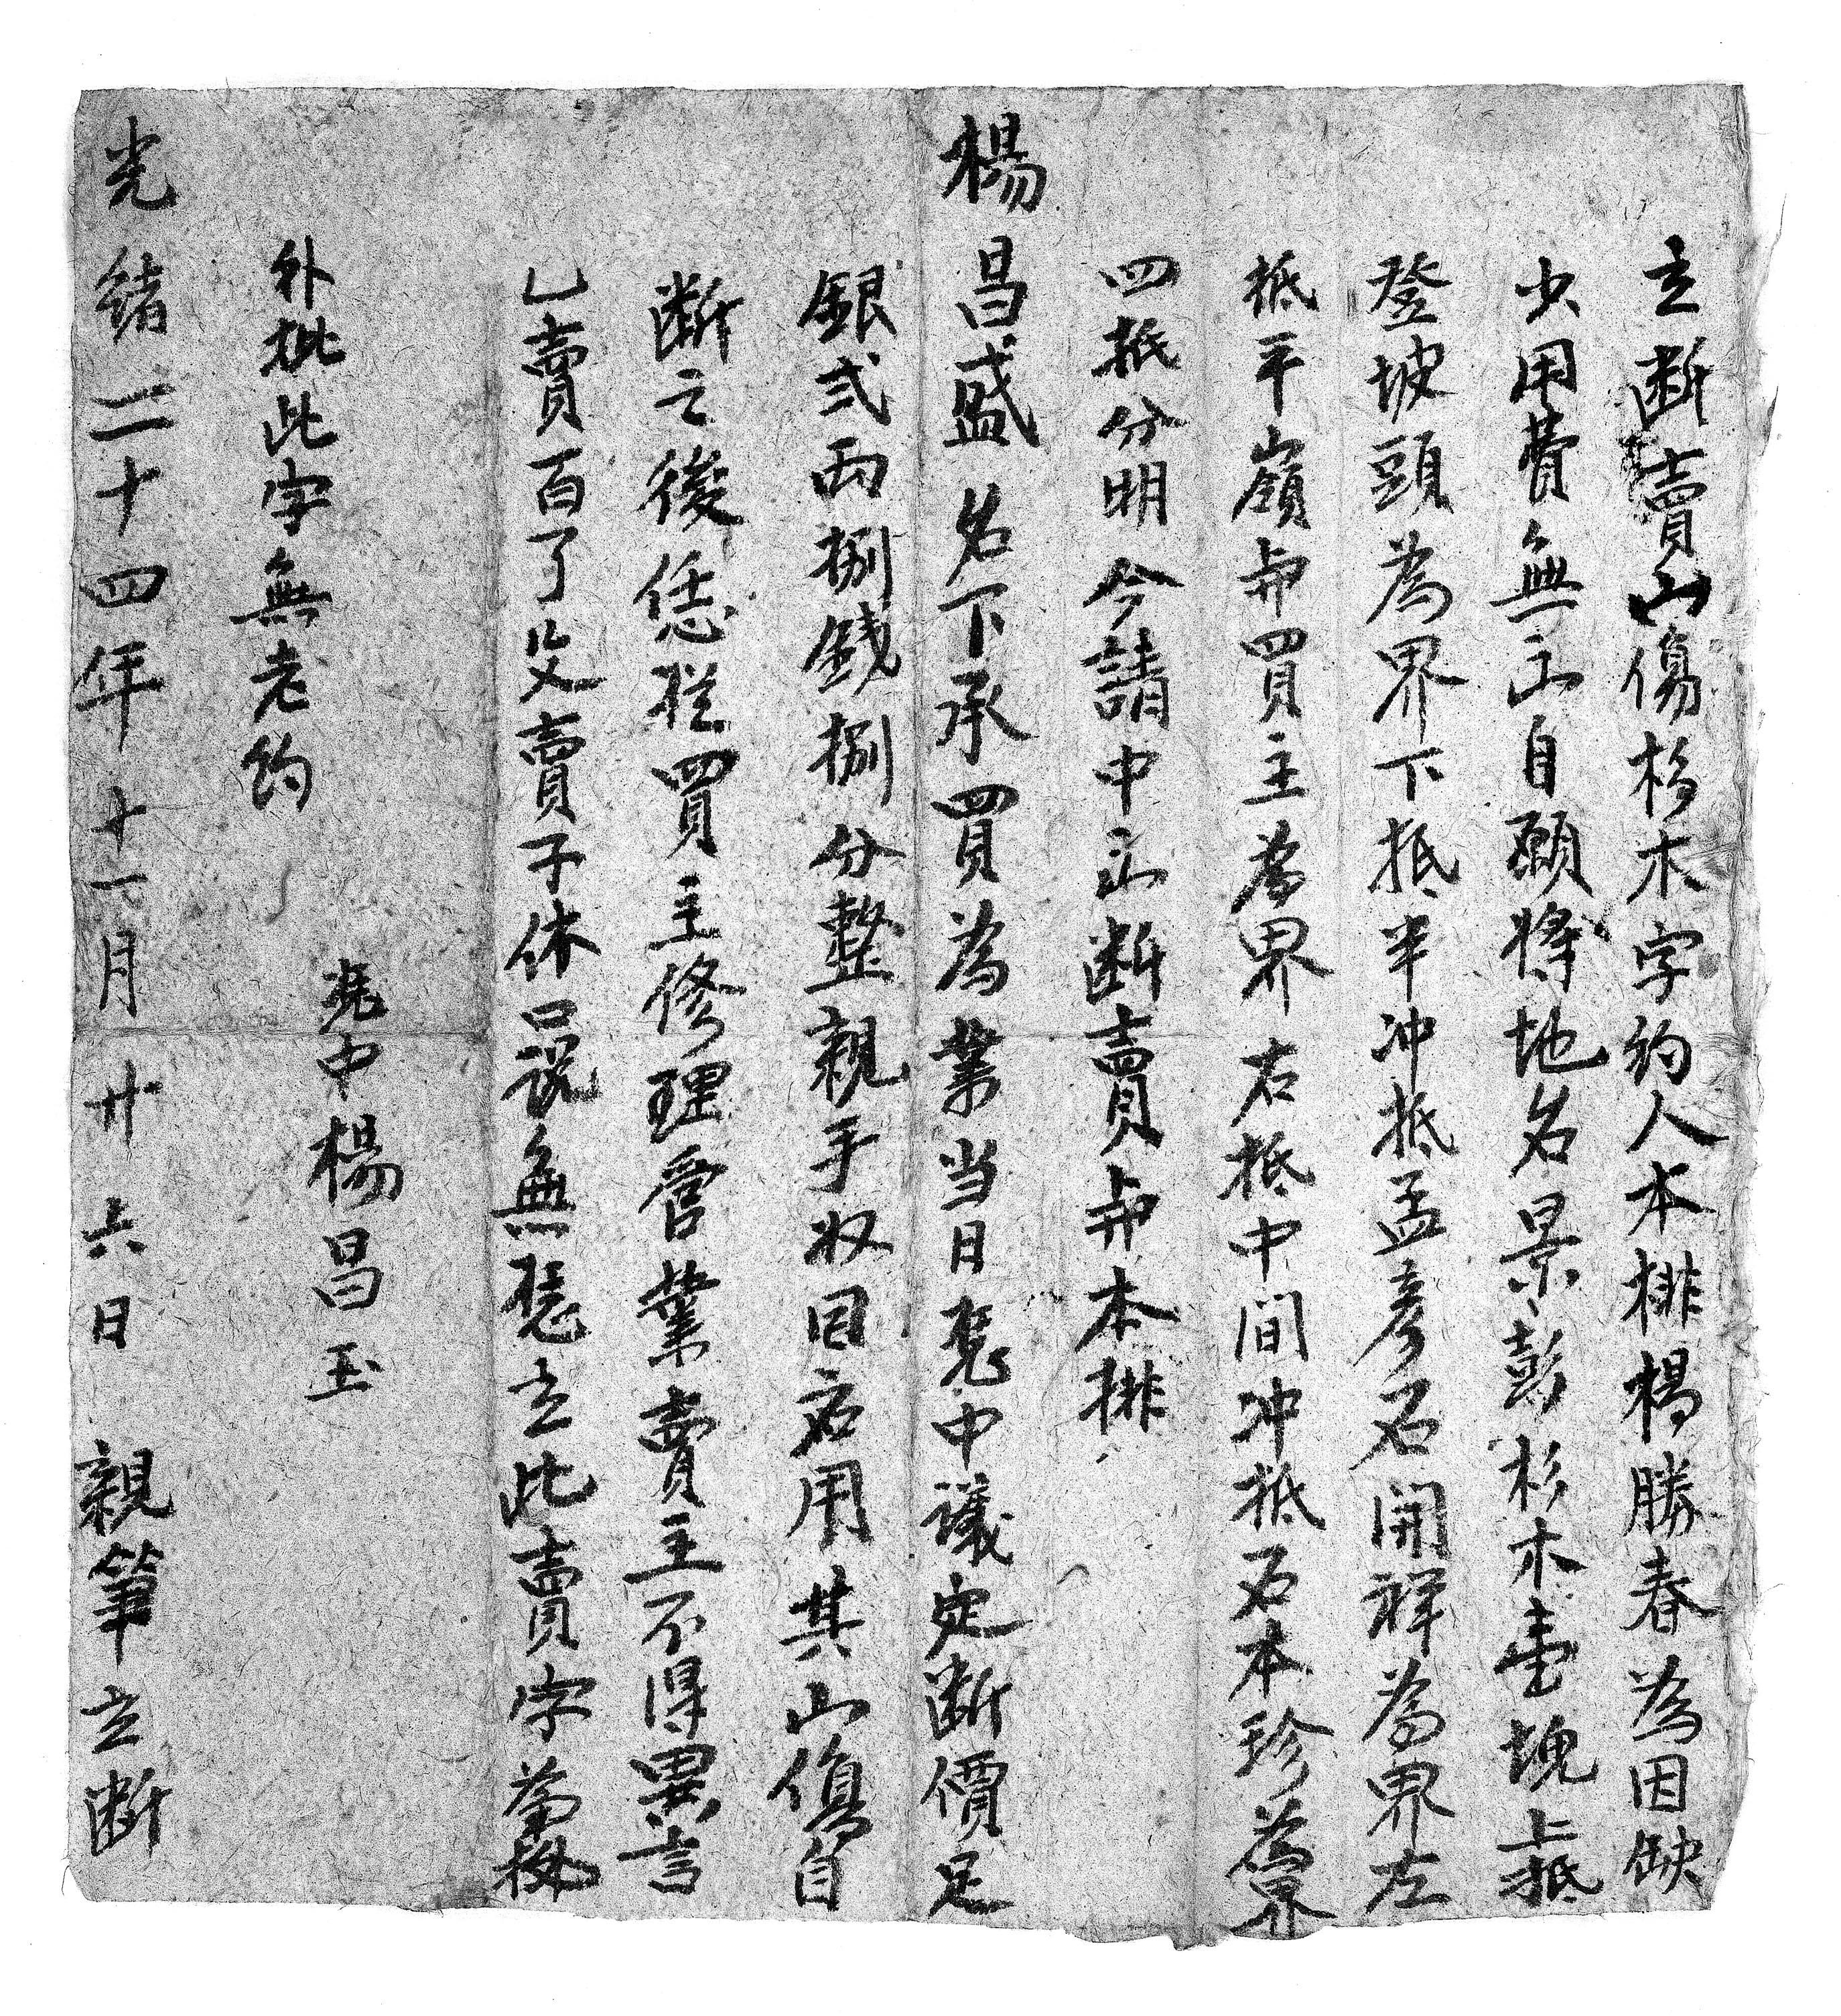 立断賣山傷杉木字約人本排楊勝春為因缺
少用費無出自願將地名景彭杉木壹塊上抵
登坡頭為界下抵半冲抵孟彦石開祥為界左
抵平嶺与買主為界右抵中間冲抵石本珍為界
四抵分明今請中出断賣与本排
楊昌盛名下承買為業当日凭中議定断價足
銀弍両捌錢捌分整親手收回应用其山傷自
断之後恁從買主修理管業賣主不得異言
乚賣百了父賣子休口說無憑立此賣字為據
凭中楊昌玉
外批此字無老約
光緒二十四年十一月廿六日 親筆立断